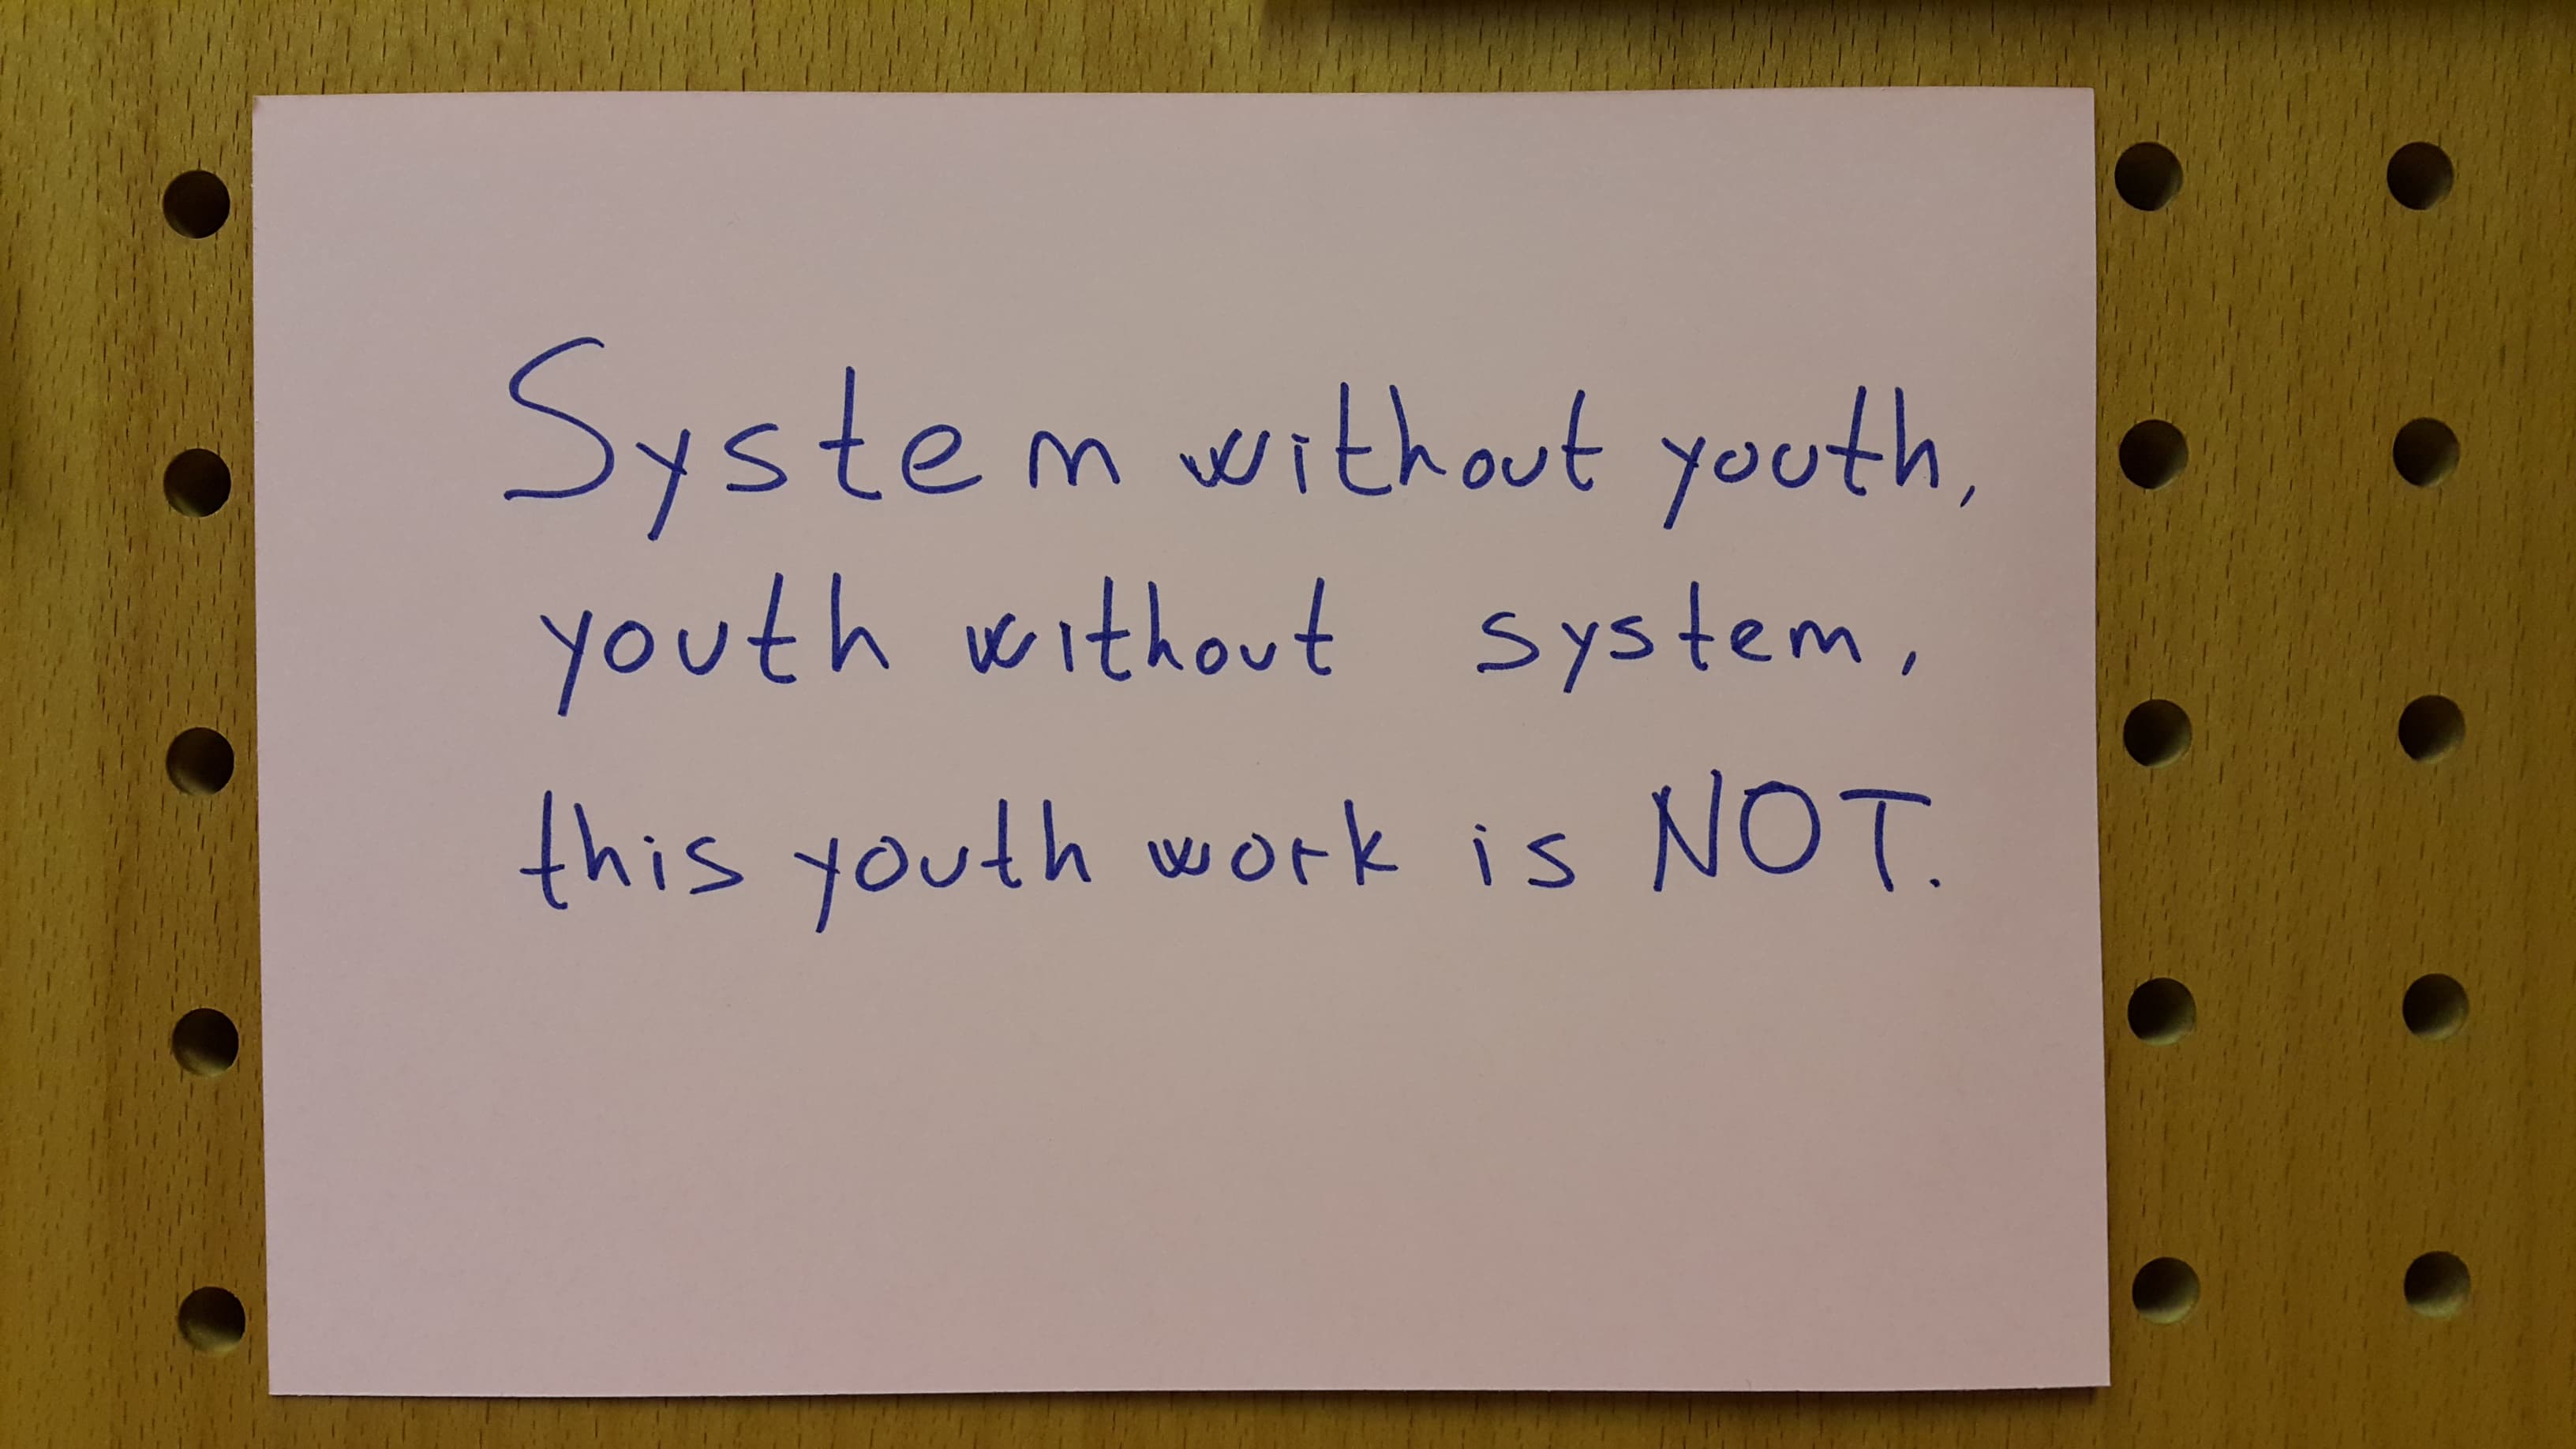 System without youth,
youth without system,
this youth work is NOT.